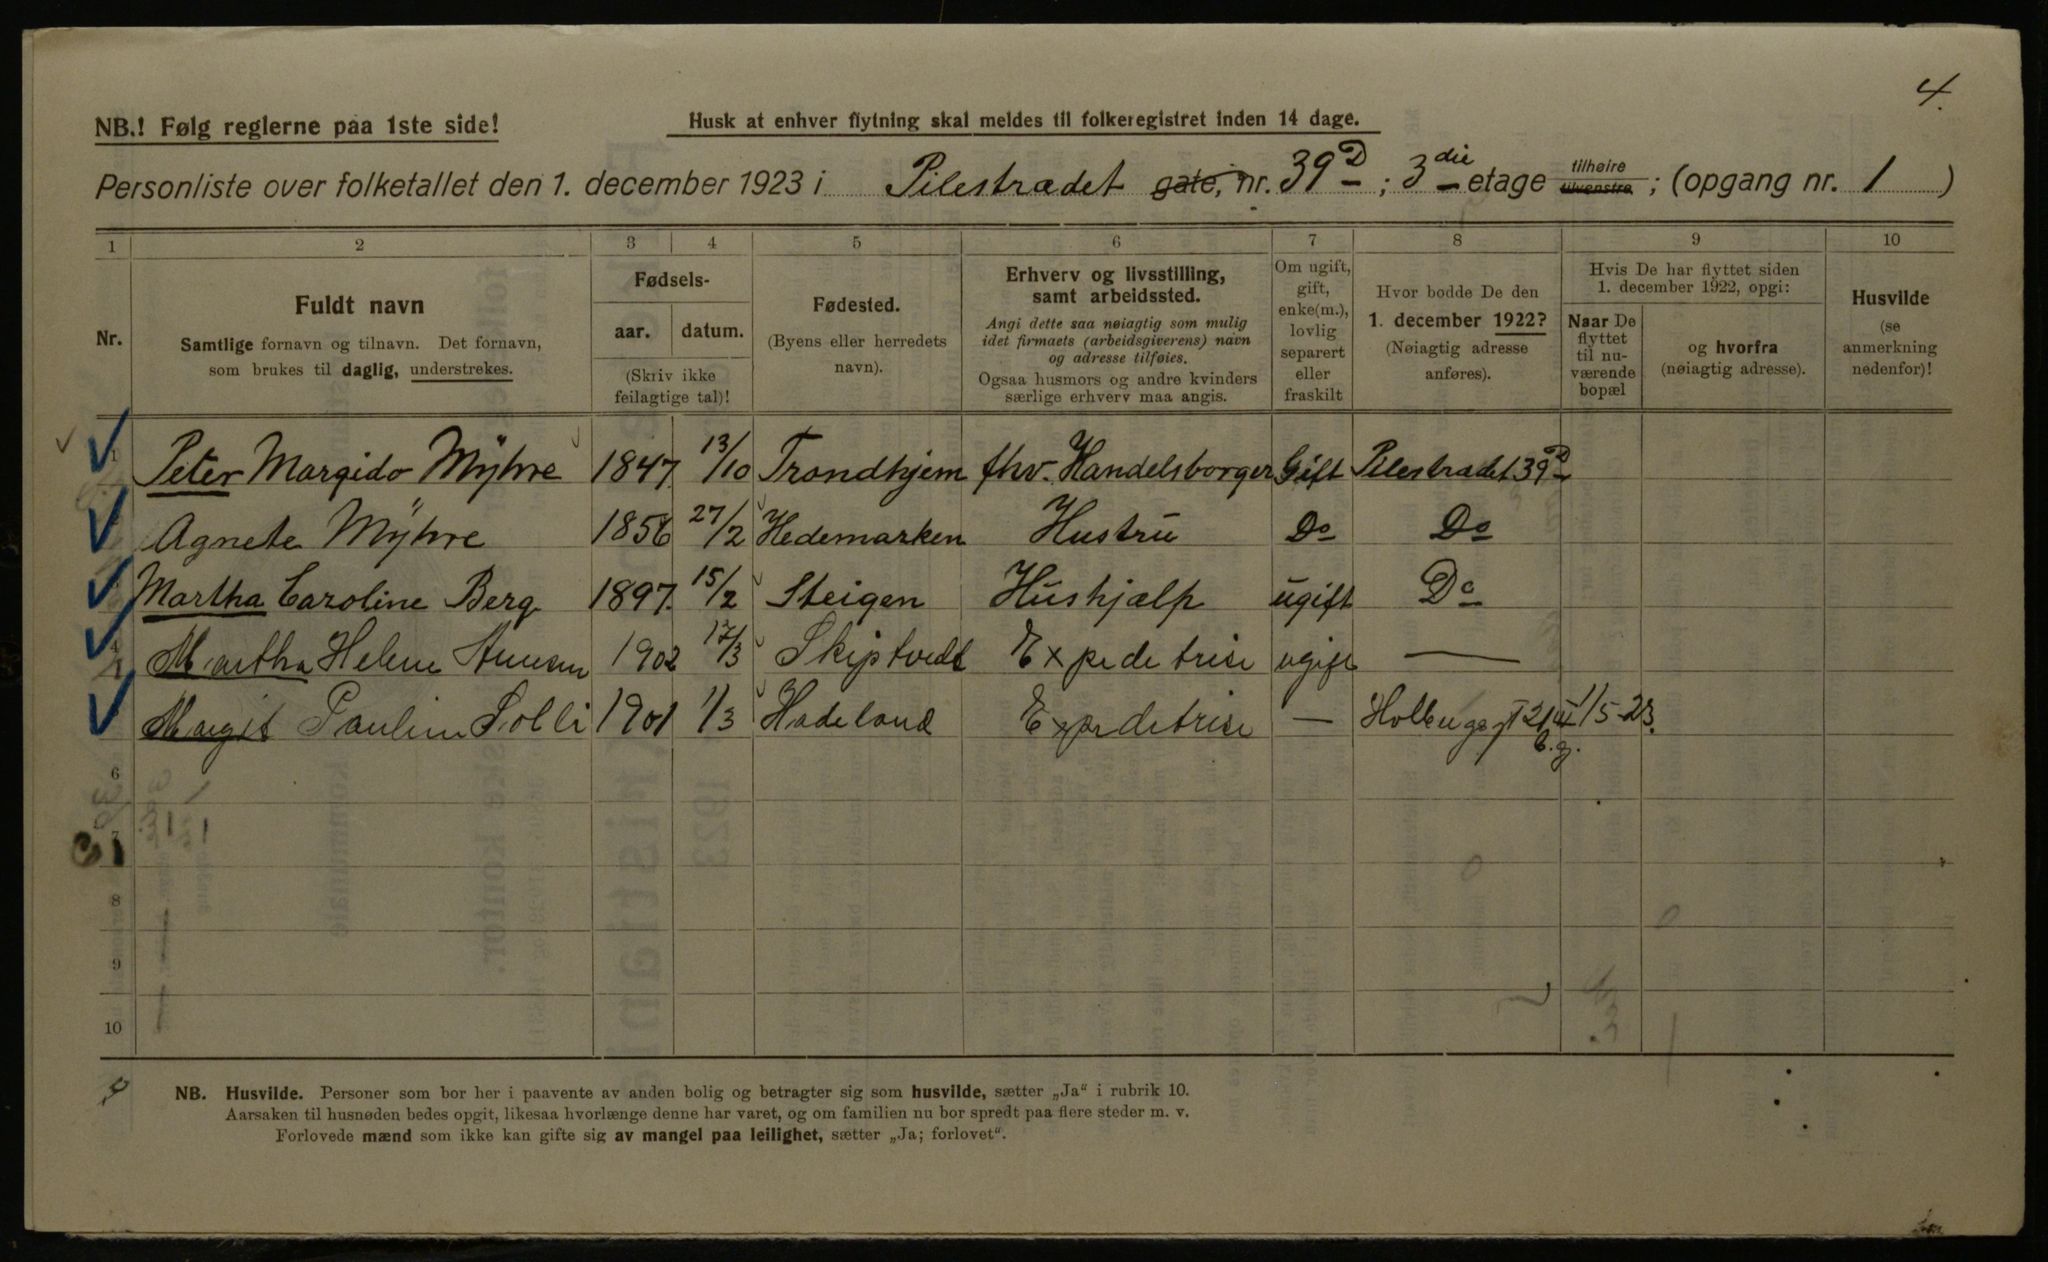 4.
NB.! Følg reglerne paa 1ste side!
Husk at enhver flytning skal meldes til folkeregistret inden 14 dage.
Personliste over folketallet den 1. december 1923 i Pilestrædet gate, nr. 39 D ; 3 die etage tilhøire tilvenstre ; (opgang nr. 1 )
1 2 3 4 5 6 7 8 9 10
Nr.
Fuldt navn
Samtlige fornavn og tilnavn. Det fornavn,
som brukes til daglig, understrekes.
Fødsels-
aar. datum.
(Skriv ikke
feilagtige tal)!
Fødested.
(Byens eller herredets
navn).
Erhverv og livsstilling,
samt arbeidssted.
Angi dette saa nøiagtig som mulig
idet firmaets (arbeidsgiverens) navn
og adresse tilføies.
Ogsaa husmors og andre kvinders
særlige erhverv maa angis.
Om ugift,
gift,
enke(m.),
lovlig
separert
eller
fraskilt
Hvor bodde De den
1. december 1922?
(Nøiagtig adresse
anføres).
Hvis De har flyttet siden
1. december 1922, opgi:
Naar De
flyttet
til nu-
værende
bopæl
og hvorfra
(nøiagtig adresse).
Husvilde
(se
anmerkning
nedenfor)!
1 Peter Margido Mÿhre 1847. 13/10 Trondhjem fhv. Handelsborger Gift Pilestrædet 39 D
Agnete Mÿhre 1856 27/2 Hedemarken Hustru Do Do
Martha Caroline Berg 1897. 15/2 Steigen Hushjælp ugift Do
4 Martha Helene 1902 17/3 Skiptvedt Expeditrise ugift —
Margit Pauline Solli 1901 1/3 Hadeland Expeditrise — 1/5-23.
6
7
8
9
10
NB. Husvilde. Personer som bor her i paavente av anden bolig og betragter sig som husvilde, sætter „Ja“ i rubrik 10.
Aarsaken til husnøden bedes opgit, likesaa hvorlænge denne har varet, og om familien nu bor spredt paa flere steder m. v.
Forlovede mænd som ikke kan gifte sig av mangel paa leilighet, sætter „Ja; forlovet“.